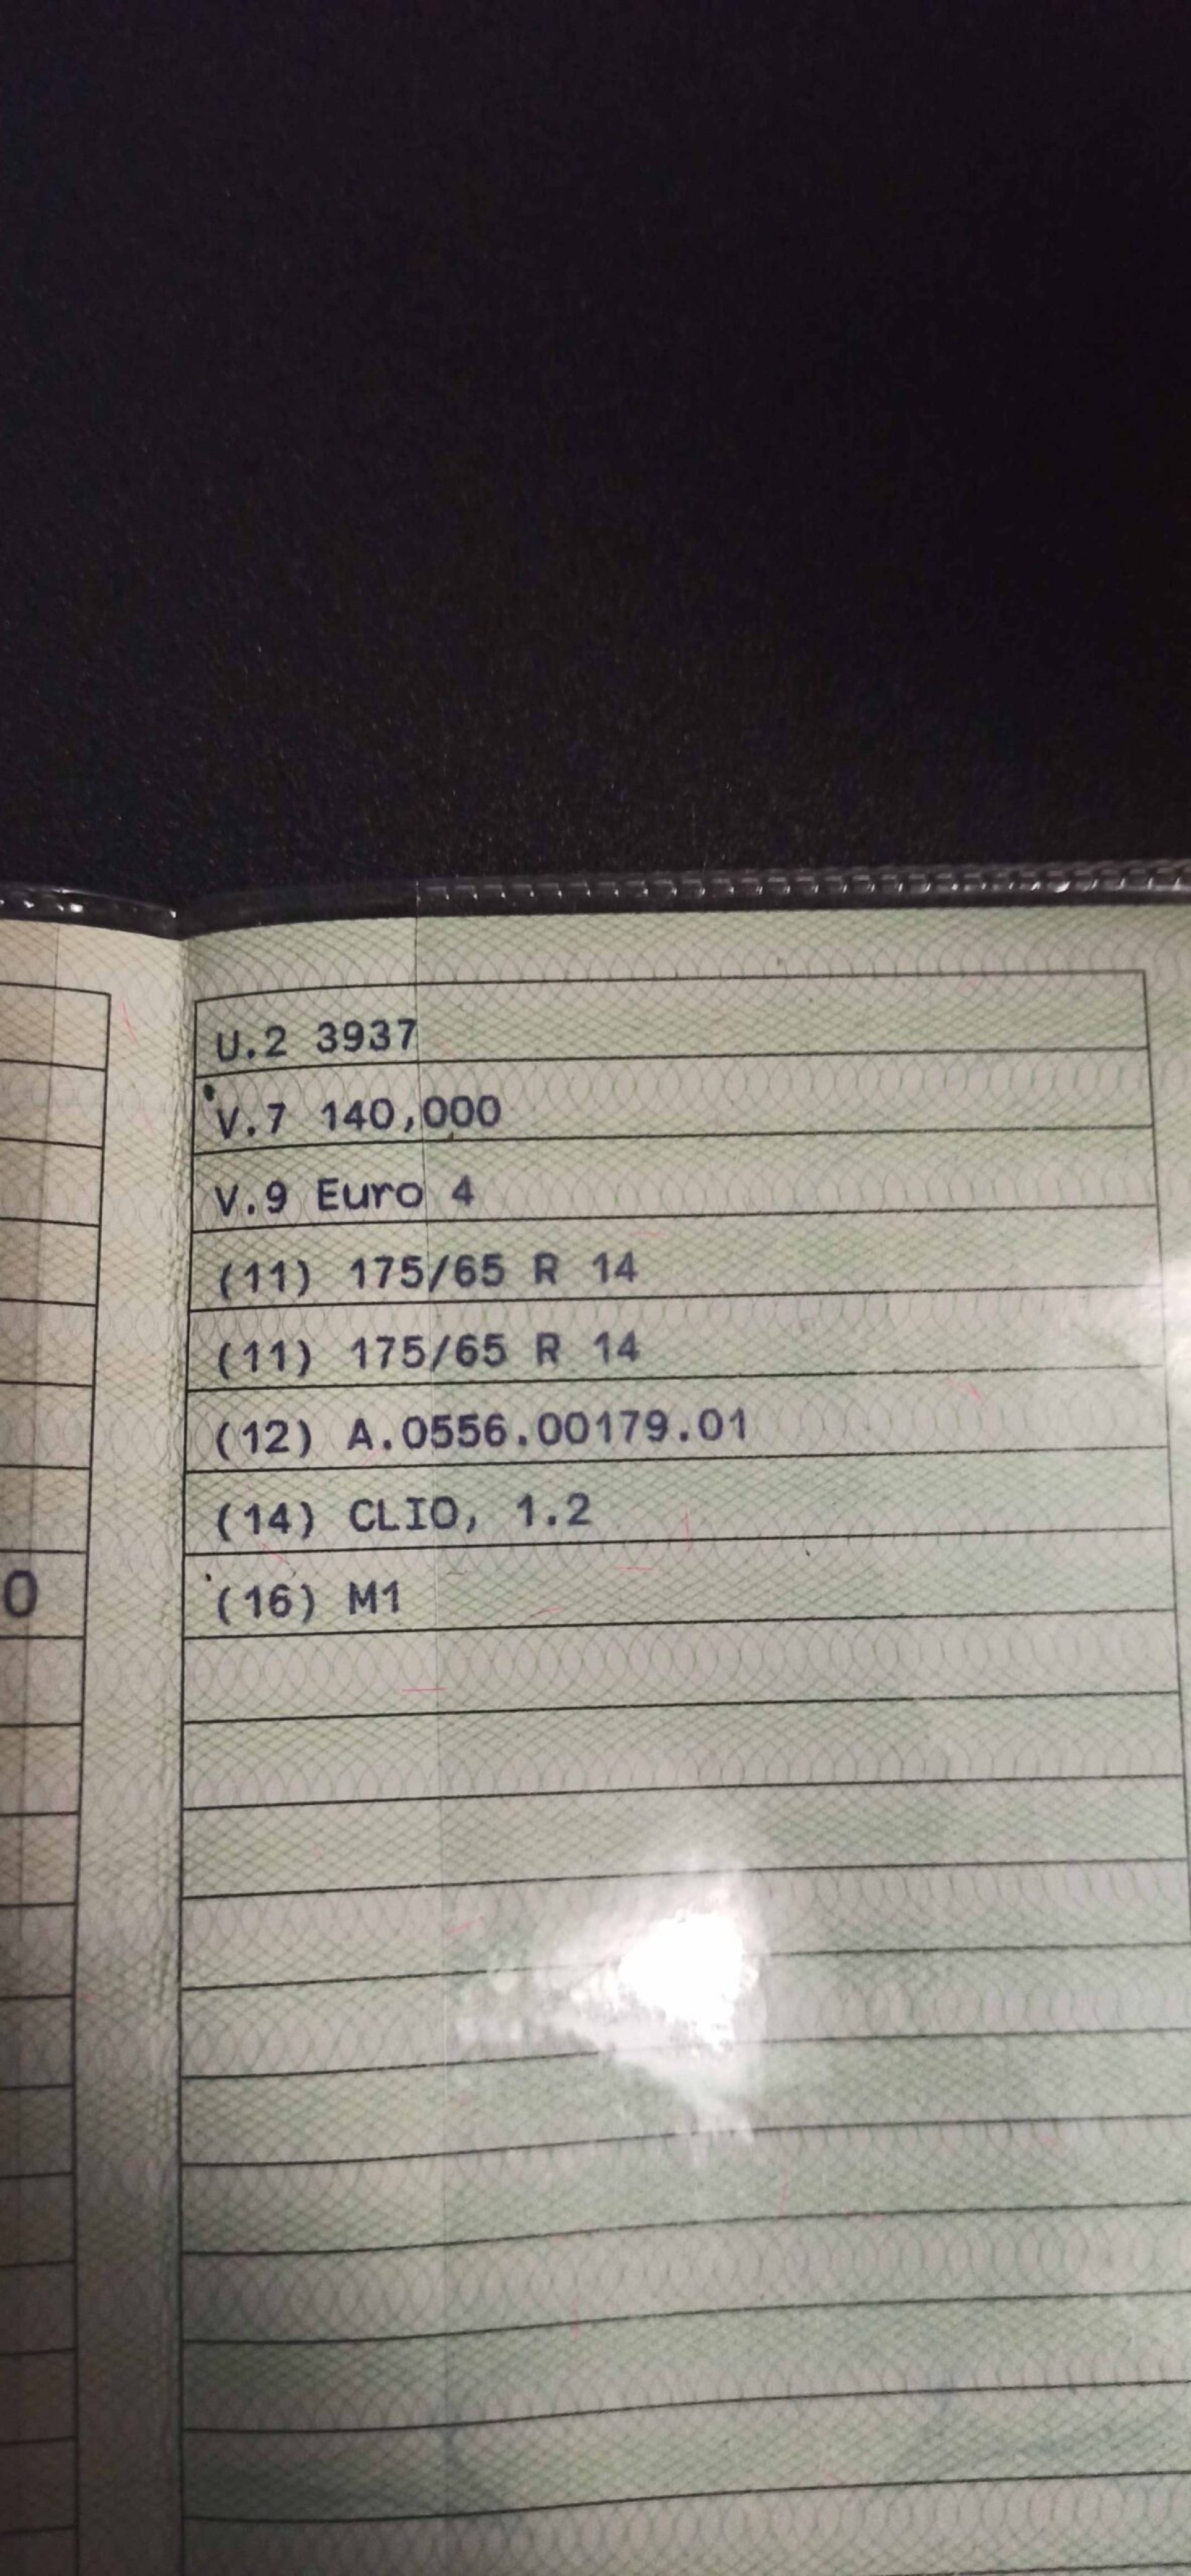 U.2 3937
V.7 140,000
V.9 Euro 4
(11) 175/65 R 14
(11) 175/65 R 14
(12) A.0556.00179.01
(14) CLIO, 1.2
0
(16) M1